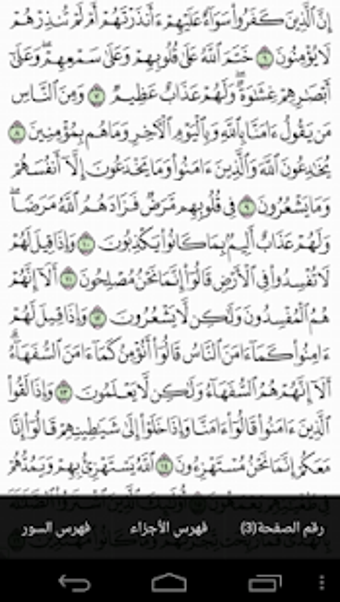 إِنَّ ٱلَّذِينَ كَفَرُوا۟ سَوَآءٌ عَلَيْهِمْ ءَأَنذَرْتَهُمْ أَمْ لَمْ تُنذِرْهُمْ
لَا يُؤْمِنُونَ ٦ خَتَمَ ٱللَّهُ عَلَىٰ قُلُوبِهِمْ وَعَلَىٰ سَمْعِهِمْ ۖ وَعَلَىٰٓ
أَبْصَٰرِهِمْ غِشَٰوَةٌ ۖ وَلَهُمْ عَذَابٌ عَظِيمٌ ٧ وَمِنَ ٱلنَّاسِ
مَن يَقُولُ ءَامَنَّا بِٱللَّهِ وَبِٱلْيَوْمِ ٱلْءَاخِرِ وَمَا هُم بِمُؤْمِنِينَ ٨
يُخَٰدِعُونَ ٱللَّهَ وَٱلَّذِينَ ءَامَنُوا۟ وَمَا يَخْدَعُونَ إِلَّآ أَنفُسَهُمْ
وَمَا يَشْعُرُونَ ٩ فِى قُلُوبِهِم مَّرَضٌ فَزَادَهُمُ ٱللَّهُ مَرَضًا ۖ
وَلَهُمْ عَذَابٌ أَلِيمٌۢ بِمَا كَانُوا۟ يَكْذِبُونَ ١٠ وَإِذَا قِيلَ لَهُمْ
لَا تُفْسِدُوا۟ فِى ٱلْأَرْضِ قَالُوٓا۟ إِنَّمَا نَحْنُ مُصْلِحُونَ ١١ أَلَآ إِنَّهُمْ
هُمُ ٱلْمُفْسِدُونَ وَلَٰكِن لَّا يَشْعُرُونَ ١٢ وَإِذَا قِيلَ لَهُمْ
ءَامِنُوا۟ كَمَآ ءَامَنَ ٱلنَّاسُ قَالُوٓا۟ أَنُؤْمِنُ كَمَآ ءَامَنَ ٱلسُّفَهَآءُ ۗ
أَلَآ إِنَّهُمْ هُمُ ٱلسُّفَهَآءُ وَلَٰكِن لَّا يَعْلَمُونَ ١٣ وَإِذَا لَقُوا۟
ٱلَّذِينَ ءَامَنُوا۟ قَالُوٓا۟ ءَامَنَّا وَإِذَا خَلَوْا۟ إِلَىٰ شَيَٰطِينِهِمْ قَالُوٓا۟ إِنَّا
مَعَكُمْ إِنَّمَا نَحْنُ مُسْتَهْزِءُونَ ١٤ ٱللَّهُ يَسْتَهْزِئُ بِهِمْ وَيَمُدُّهُمْ
رقم الصفحة(3) فهرس الأجزاء فهرس السور